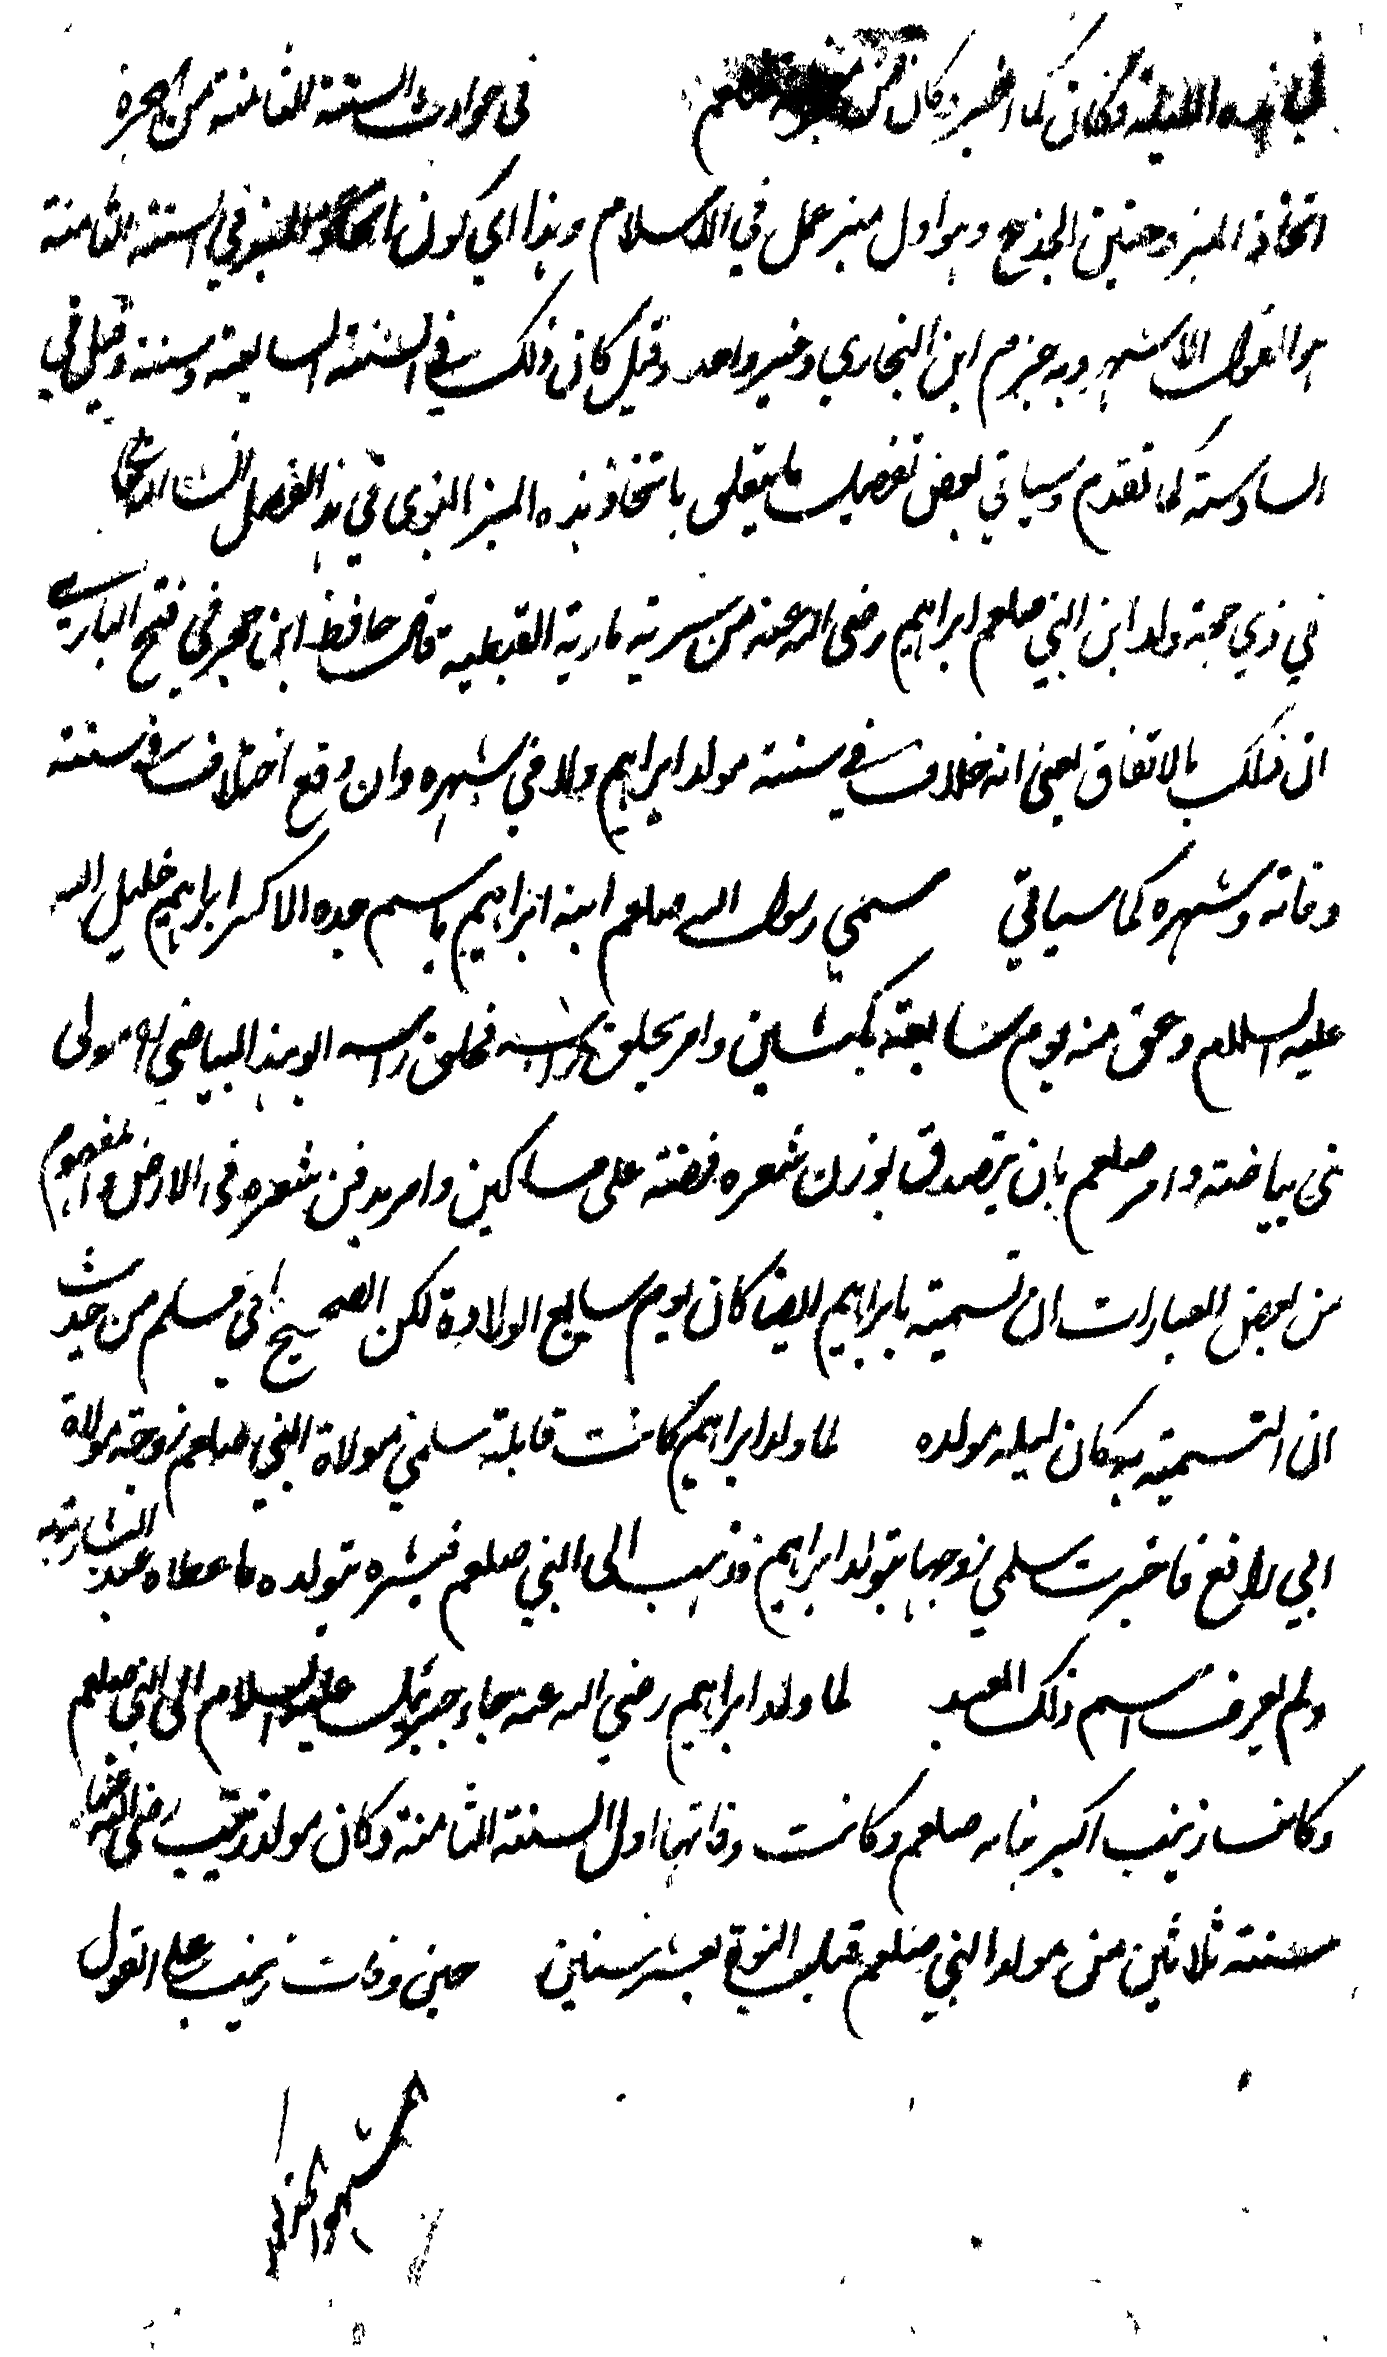 في هذه الليلة فكان كما اخبر وكان من صلعم في حوادث السنة الثامنة من الهجرة
اتخاذ المنبر وحنين الجذع وهو اول منبر عمل في الاسلام وهذا اي كون اتخاذ المنبر في السنة الثامنة
هو القول الاشهر وبه جزم ابن النجاري وغير واحد وقيل كان ذلك في السنة السابعة وسنة وقيل في
السادسة كما تقدم وسياتي بعض تفصيل ما يتعلق باتخاذ هذه المنبر النبوي في هذا الفصل انشا الله تعالى
في ذي حجة ولد ابن النبي صلعم ابراهيم رضي الله عنه من سرية مارية القبطية قال حافظ ابن حجر في فتح الباري
ان ذلك بالاتفاق يعني انه خلاف في سنة مولد ابراهيم ولا في شهره وان وقع اختلاف في سنة
وفاته وشهره كما سياتي سمى رسول الله صلعم ابنه ابراهيم باسم جده الاكبر ابراهيم خليل الله
عليه السلام وعق منه يوم سابعة بكبشين وامر بحلق راسه فحلق راسه ابو هند البياضي مولى
بني بياضة وامر صلعم بان يتصدق بوزن شعره فضة على مساكين وامر بدفن شعره في الارض والمفهوم
من بعض العبارات ان تسمية بابراهيم ايضا كان يوم سابع الولادة لكن الصحيح في مسلم من حديث
ان التسمية به كان ليلة مولده لما ولد ابراهيم كانت قابلة سلمى مولاة النبي صلعم زوجة مولاة
ابي رافع فاخبرت سلمي زوجها بتولد ابراهيم فذهب الى النبي صلعم فبشره بتولده فاعطاه عبد البشارتة
ولم يعرف اسم ذلك العبد لما ولد ابراهيم رضي الله عنه جاء جبريل عليه السلام الى النبي صلعم
وكانت زينب اكبر بناته صلعم وكانت وفاتها اول السنة الثامنة وكان مولد زينب رضى الله عنها
سنة ثلاثين من مولد النبي صلعم قبل النبوة بعشر سنين حين وفات زينب على القول